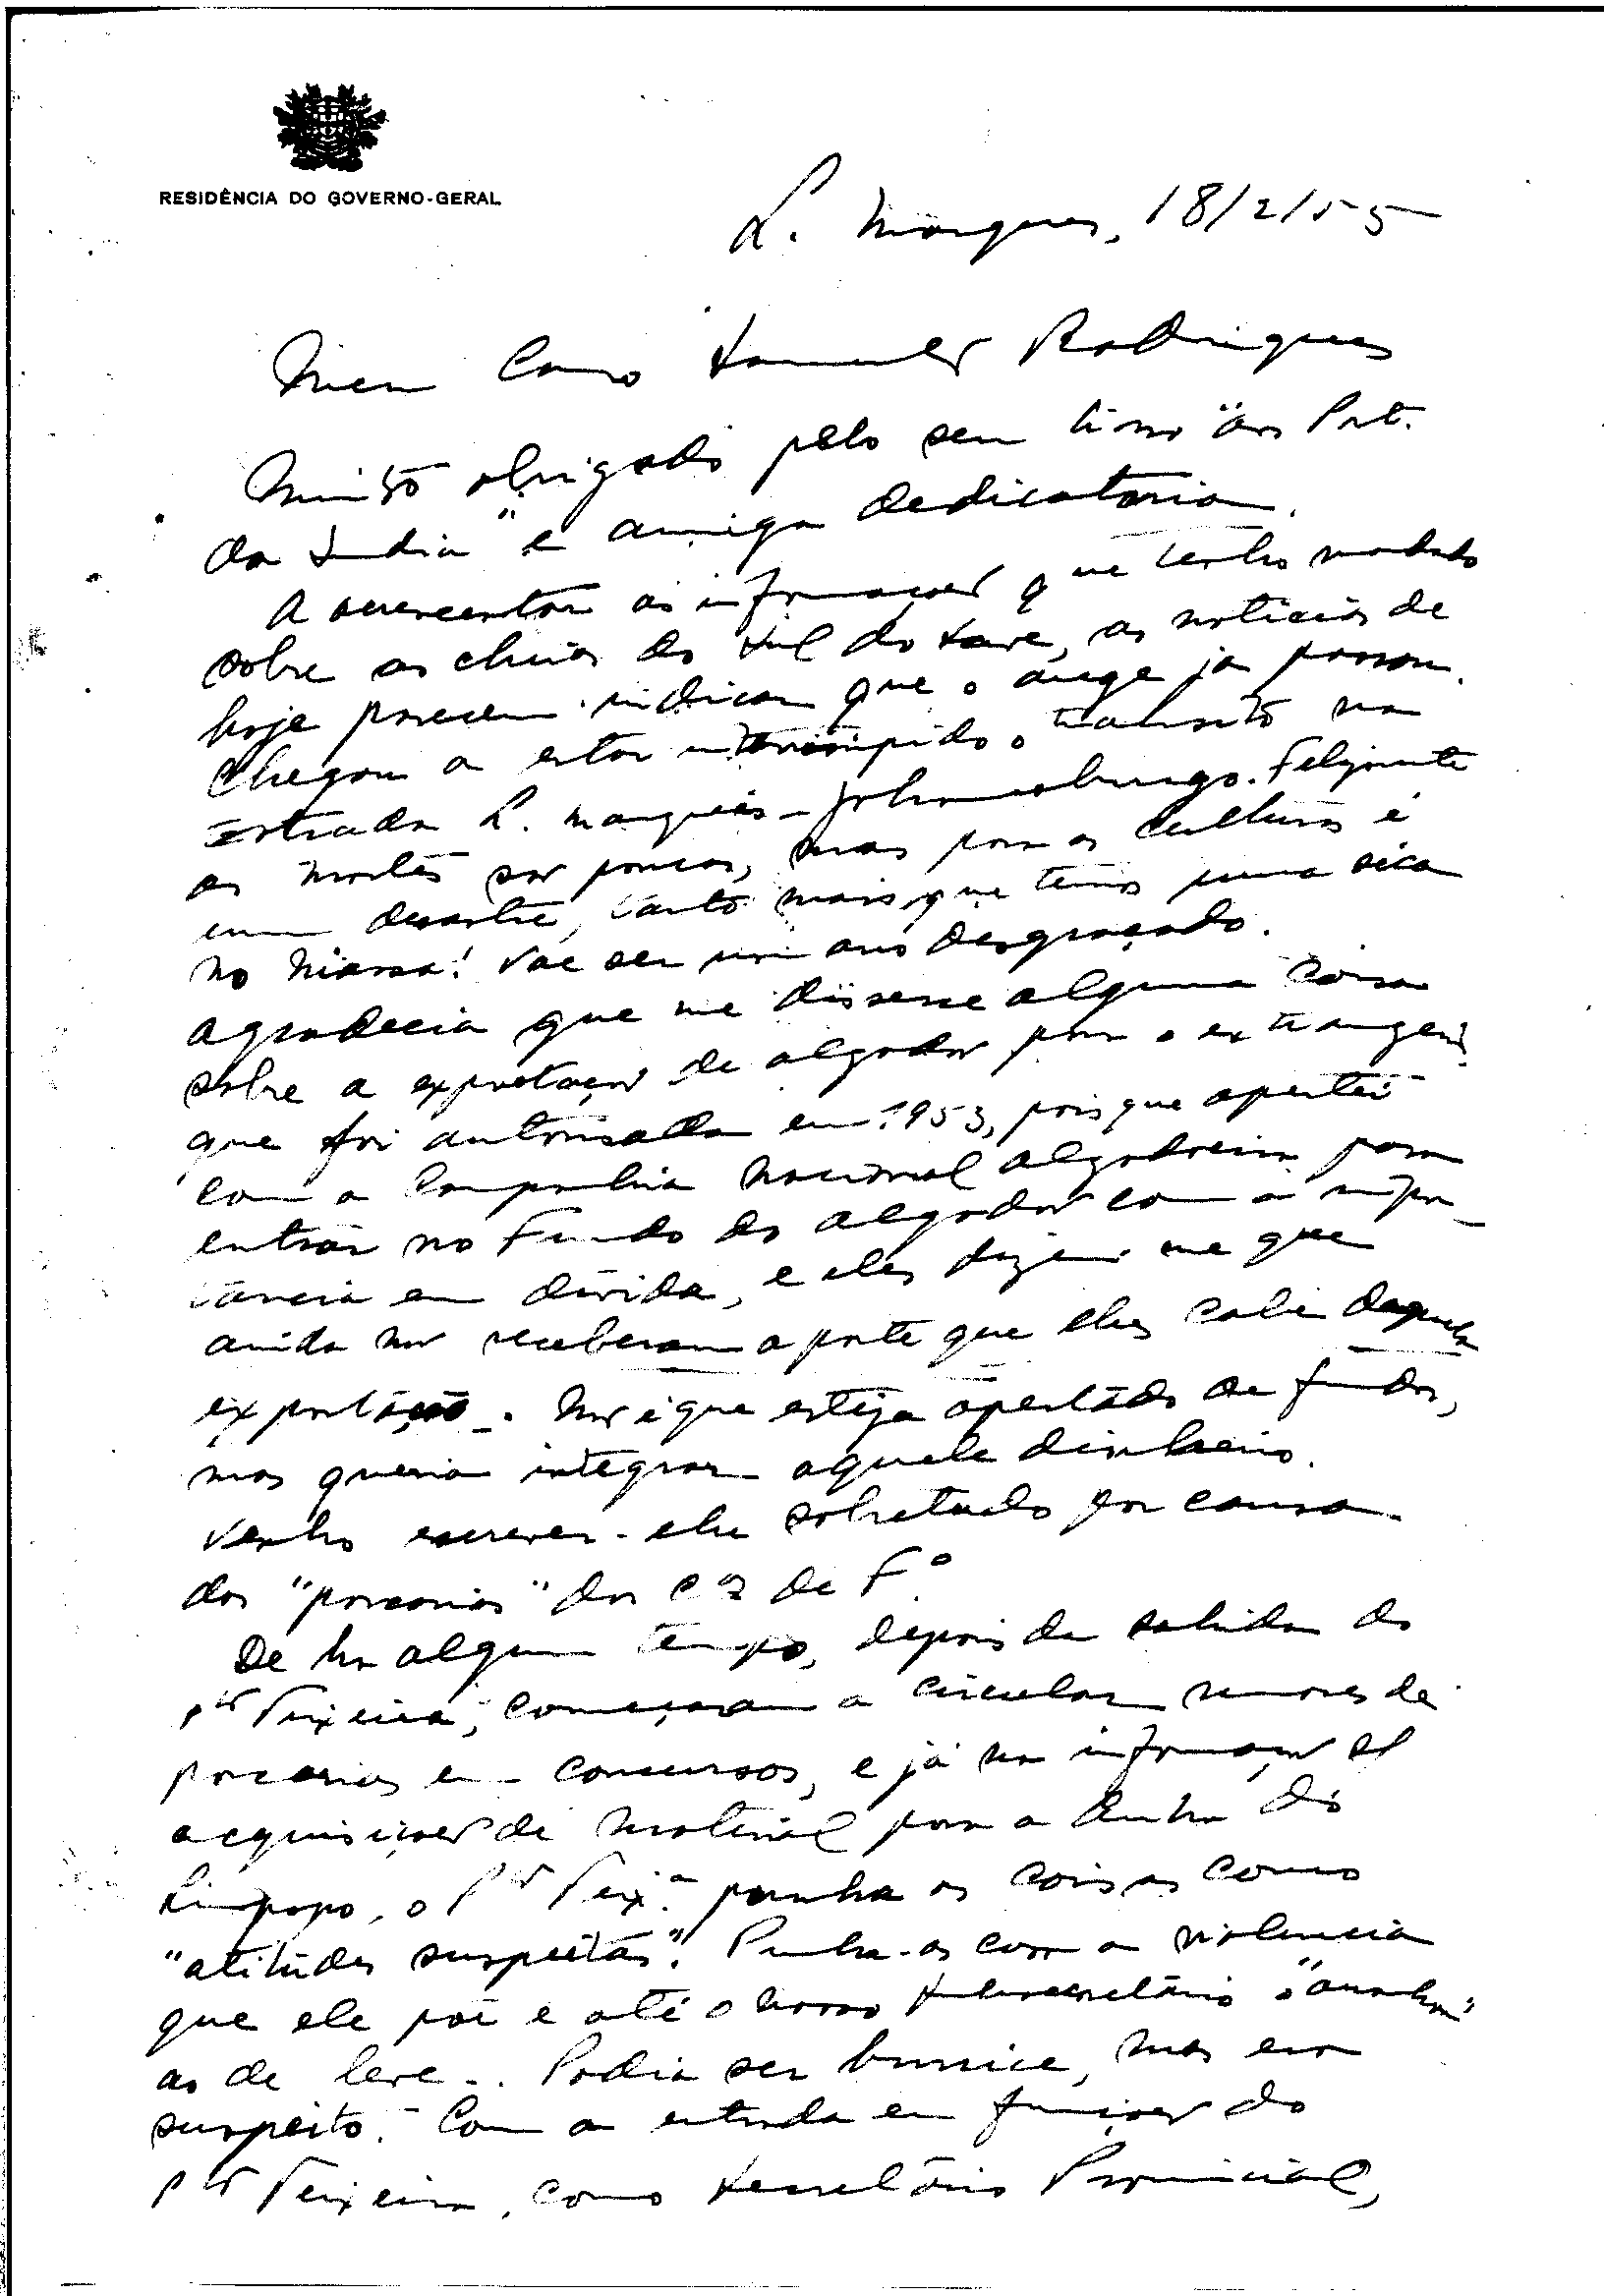 RESIDÊNCIA DO GOVERNO-GERAL
L. Marques, 18/2/55
Meu Caro Sarmento Rodrigues
Muito obrigado pelo seu livro "Aos Port.
da India" e amiga dedicatoria.
A acrescentar às informações que tenho mandado
sobre as cheias do Sul do Save, as noticias de
hoje parecem indicar que o auge já passou.
Chegou a estar interrompido o transito na
estrada L. Marques - Johannesburgo. Felizmente
as mortes são poucas, mas para as culturas é
um desastre, tanto mais que temos uma sêca
no Niassa! Vae ser um ano desgraçado.
Agradecia que me dissesse alguma coisa
sobre a exportação de algodão para o extrangeiro
que foi autorisada em 1953, pois que apertei
com a Companhia Nacional Algodoeira para
entrar no Fundo do Algodão com a impor-
tancia em divida, e eles dizem-me que
ainda não receberam a parte que lhes cabe daquela
exportação. Não é que esteja apertado de fundos,
mas queria integrar aquele dinheiro.
Venho escrever-lhe sobretudo por causa
das "porcarias" dos C. de F.º
De ha algum tempo, depois da sahida do
Teixeira, começaram a circular rumores de
porcarias em concursos, e já na informação s/
acquisições de material para a linha do
Limpopo, o Teix.ª punha as coisas como
"atitudes suspeitas". Punha-as com a violencia
que ele põe e até o nosso Subsecretário
as de leve... Podia ser burrice, mas era
suspeito. Com a entrada em funções do
Teixeira, como Secretário Provincial,